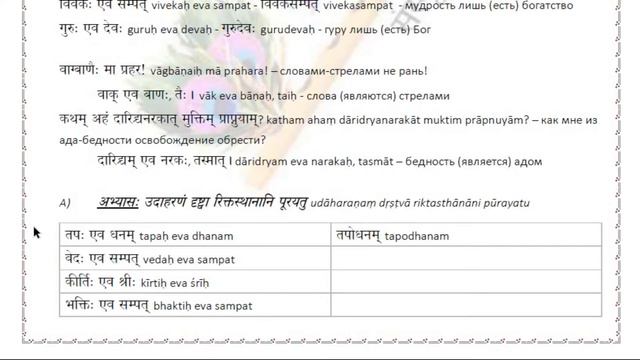 विवेकः एव सम्पत् vivekaḥ eva sampat - विवेकसम्पत् vivekasampat - мудрость лишь (есть) богатство
गुरुः एव देवः guruḥ eva devaḥ - गुरुदेवः gurudevaḥ - гуру лишь (есть) Бог
वाग्बाणैः मा प्रहर! vāgbāṇaiḥ mā prahara! – словами-стрелами не рань!
वाक् एव बाणः, तैः । vāk eva bāṇaḥ, taiḥ - слова (являются) стрелами
कथम् अहं दारिद्र्यनरकात् मुक्तिम् प्राप्नुयाम्? katham ahaṃ dāridryanarakāt muktim prāpnuyām? – как мне из
ада-бедности освобождение обрести?
दारिद्र्यम् एव नरकः, तस्मात् । dāridryam eva narakaḥ, tasmāt – бедность (является) адом
A) अभ्यासः उदाहरणं दृष्ट्वा रिक्तस्थानानि पूरयतु udāharaṇaṃ dṛṣṭvā riktasthānāni pūrayatu
तपः एव धनम् tapaḥ eva dhanam तपोधनम् tapodhanam
वेदः एव सम्पत् vedaḥ eva sampat
कीर्तिः एव श्रीः kīrtiḥ eva śrīḥ
भक्तिः एव सम्पत् bhaktiḥ eva sampat